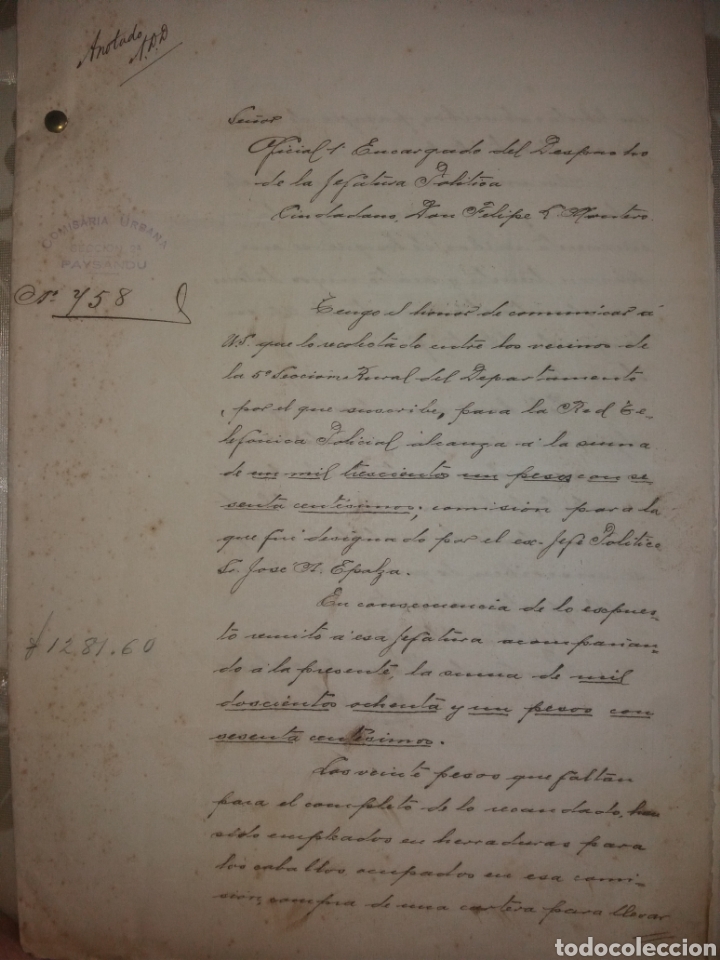 Anotado
A.D.D
Señor
Oficial 1º Encargado del Despacho
de la Jefatura Politica
Ciudadano, Don Felipe Montero.
COMISARIA URBANA
SECCION 2ª
PAYSANDU
Nº 758
Tengo el honor de comunicar á
U.S. que lo recolectado entre los vecinos de
la 5ª Seccion Rural del Departamento
, por el que suscribe, para la Red Te-
lefónica Policial alcanza á la suma
de un mil trescientos un pesos con se
senta centisimos; comision para la
que fui designado por el ex-Jefe Politico
Sr. Jose A. Epalza.
En consecuencia de lo expues-
to remito á esa Jefatura acompañan-
do á la presente, la suma de mil
doscientos ochenta y un pesos con
sesenta centisimos.
$1281.60
Los veinte pesos que faltan
para el completo de lo recaudado, han
sido empleados en herraduras para
los caballos ocupados en esa comi-
sion, compra de una cartera para llevar
todocoleccion